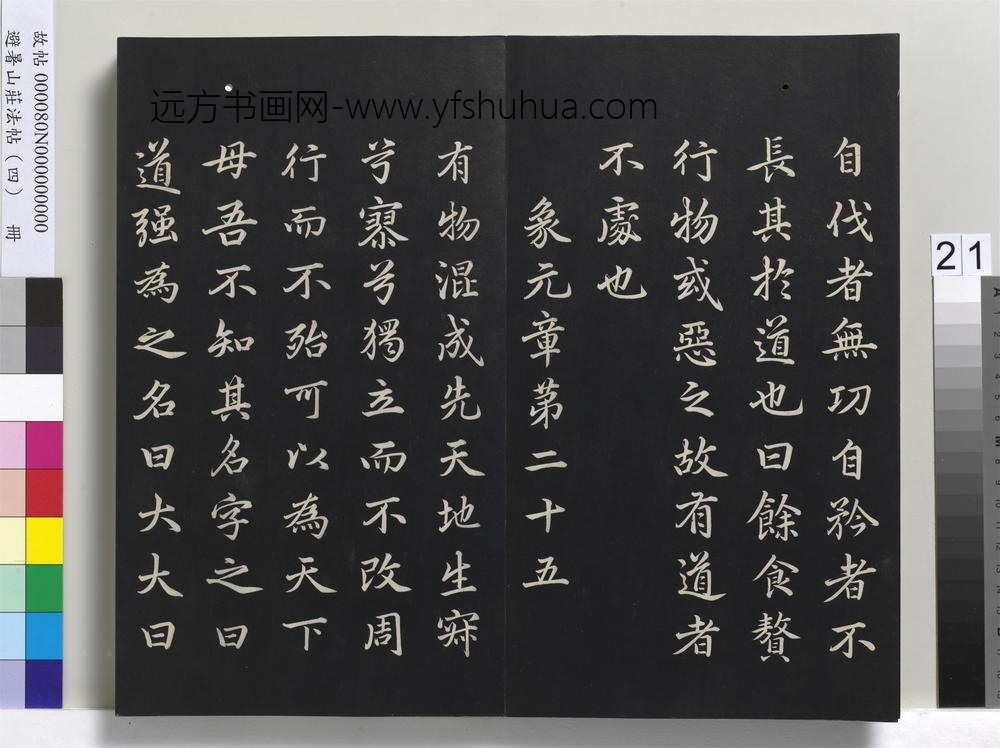 自伐者無功自矜者不
長其於道也曰餘食贅
行物或惡之故有道者
不處也
象元章第二十五
有物混成先天地生寂
兮寥兮獨立而不改周
行而不殆可以為天下
母吾不知其名字之曰
道强為之名曰大大曰
远方书画网-www.yfshuhua.com
故帖 000080N000000000
避暑山莊法帖（四） 冊
21